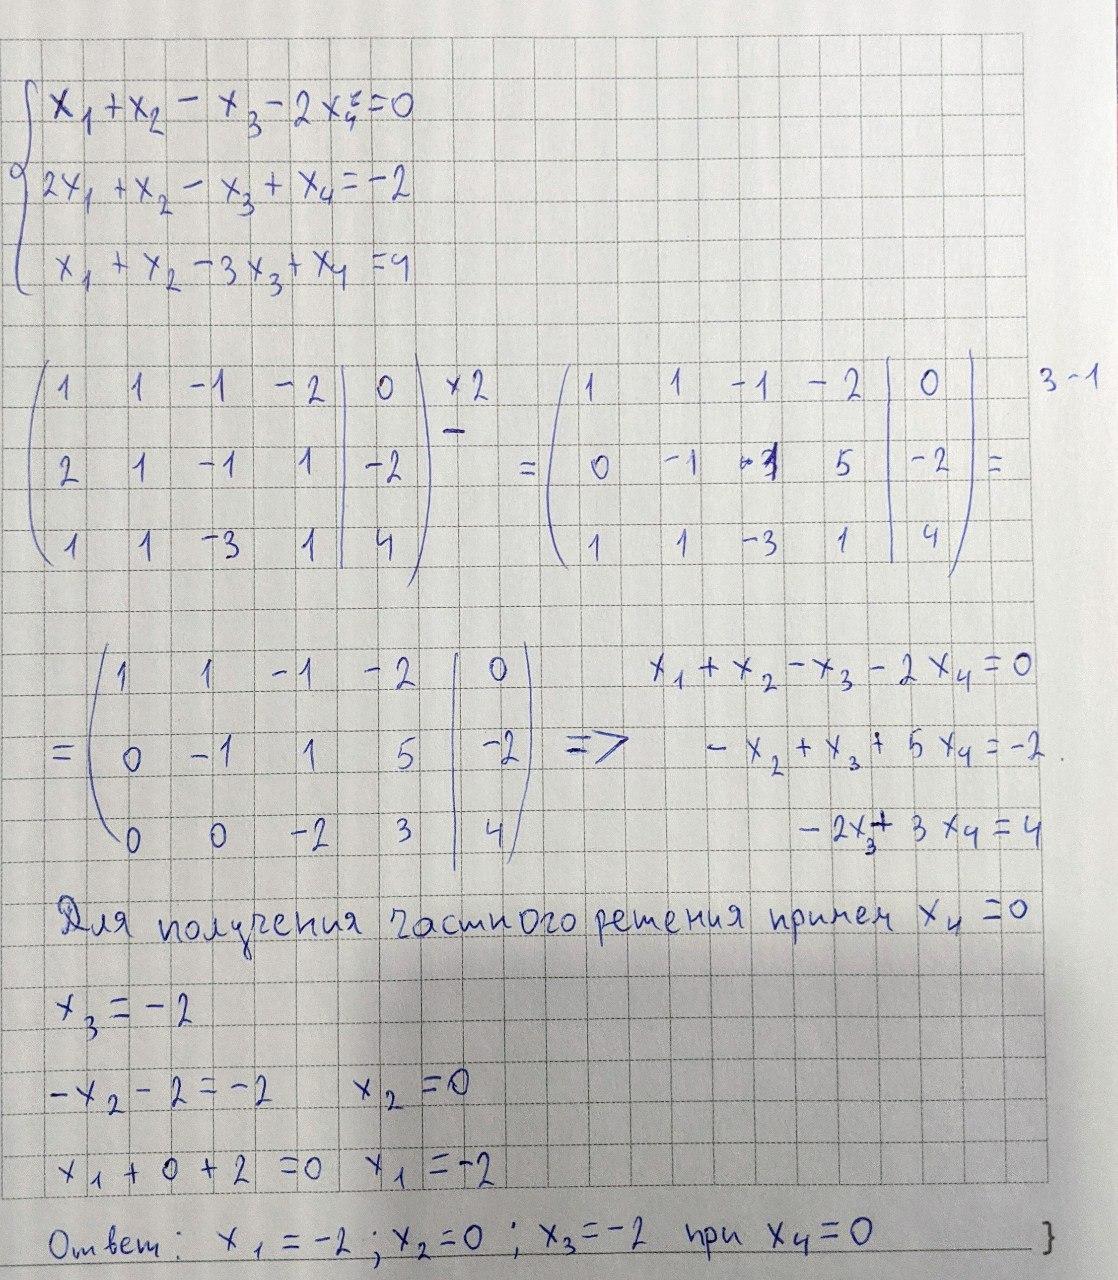 x₁ + x₂ - x₃ - 2x₄ = 0
2x₁ + x₂ - x₃ + x₄ = -2
x₁ + x₂ - 3x₃ + x₄ = 4
1 1 -1 -2 | 0 ×2 = 1 1 -1 -2 | 0 3-1
2 1 -1 1 | -2 - 0 -1 1 5 | -2 =
1 1 -3 1 | 4 1 1 -3 1 | 4
1 1 -1 -2 | 0 x₁ + x₂ - x₃ - 2x₄ = 0
= 0 -1 1 5 | -2 => - x₂ + x₃ + 5x₄ = -2
0 0 -2 3 | 4 - 2x₃ + 3x₄ = 4
Для получения частного решения примем x₄ = 0
x₃ = -2
-x₂ - 2 = -2 x₂ = 0
x₁ + 0 + 2 = 0 x₁ = -2
Ответ: x₁ = -2 ; x₂ = 0 ; x₃ = -2 при x₄ = 0 }